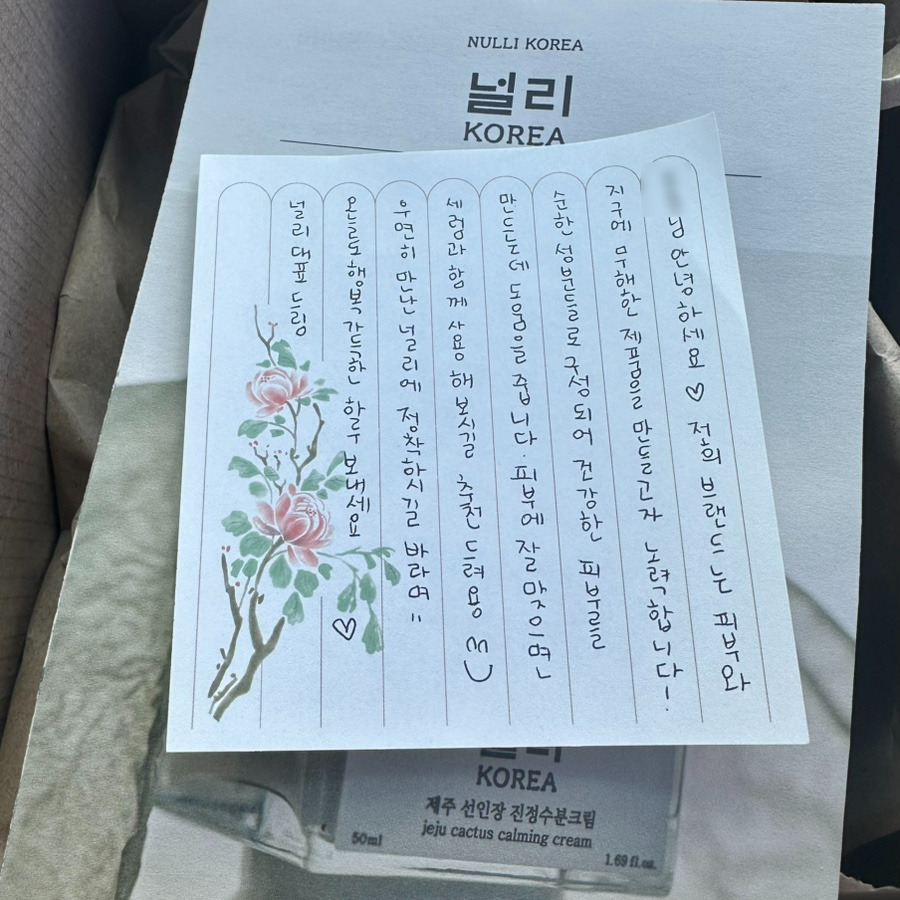 NULLI KOREA
널리
KOREA
님 안녕하세요 ♡ 저희 브랜드는 피부와
지구에 무해한 제품을 만들고자 노력합니다!
순한 성분들로 구성되어 건강한 피부를
만드는데 도움을 줍니다. 피부에 잘 맞으면
세럼과 함께 사용해보시길 추천드려용
우연히 만난 널리에 정착하시길 바라며 "
오늘도 행복 가득한 하루 보내세요 ♡
널리 대표 드림
널리
KOREA
제주 선인장 진정수분크림
jeju cactus calming cream
50ml
1.69 fl.oz.